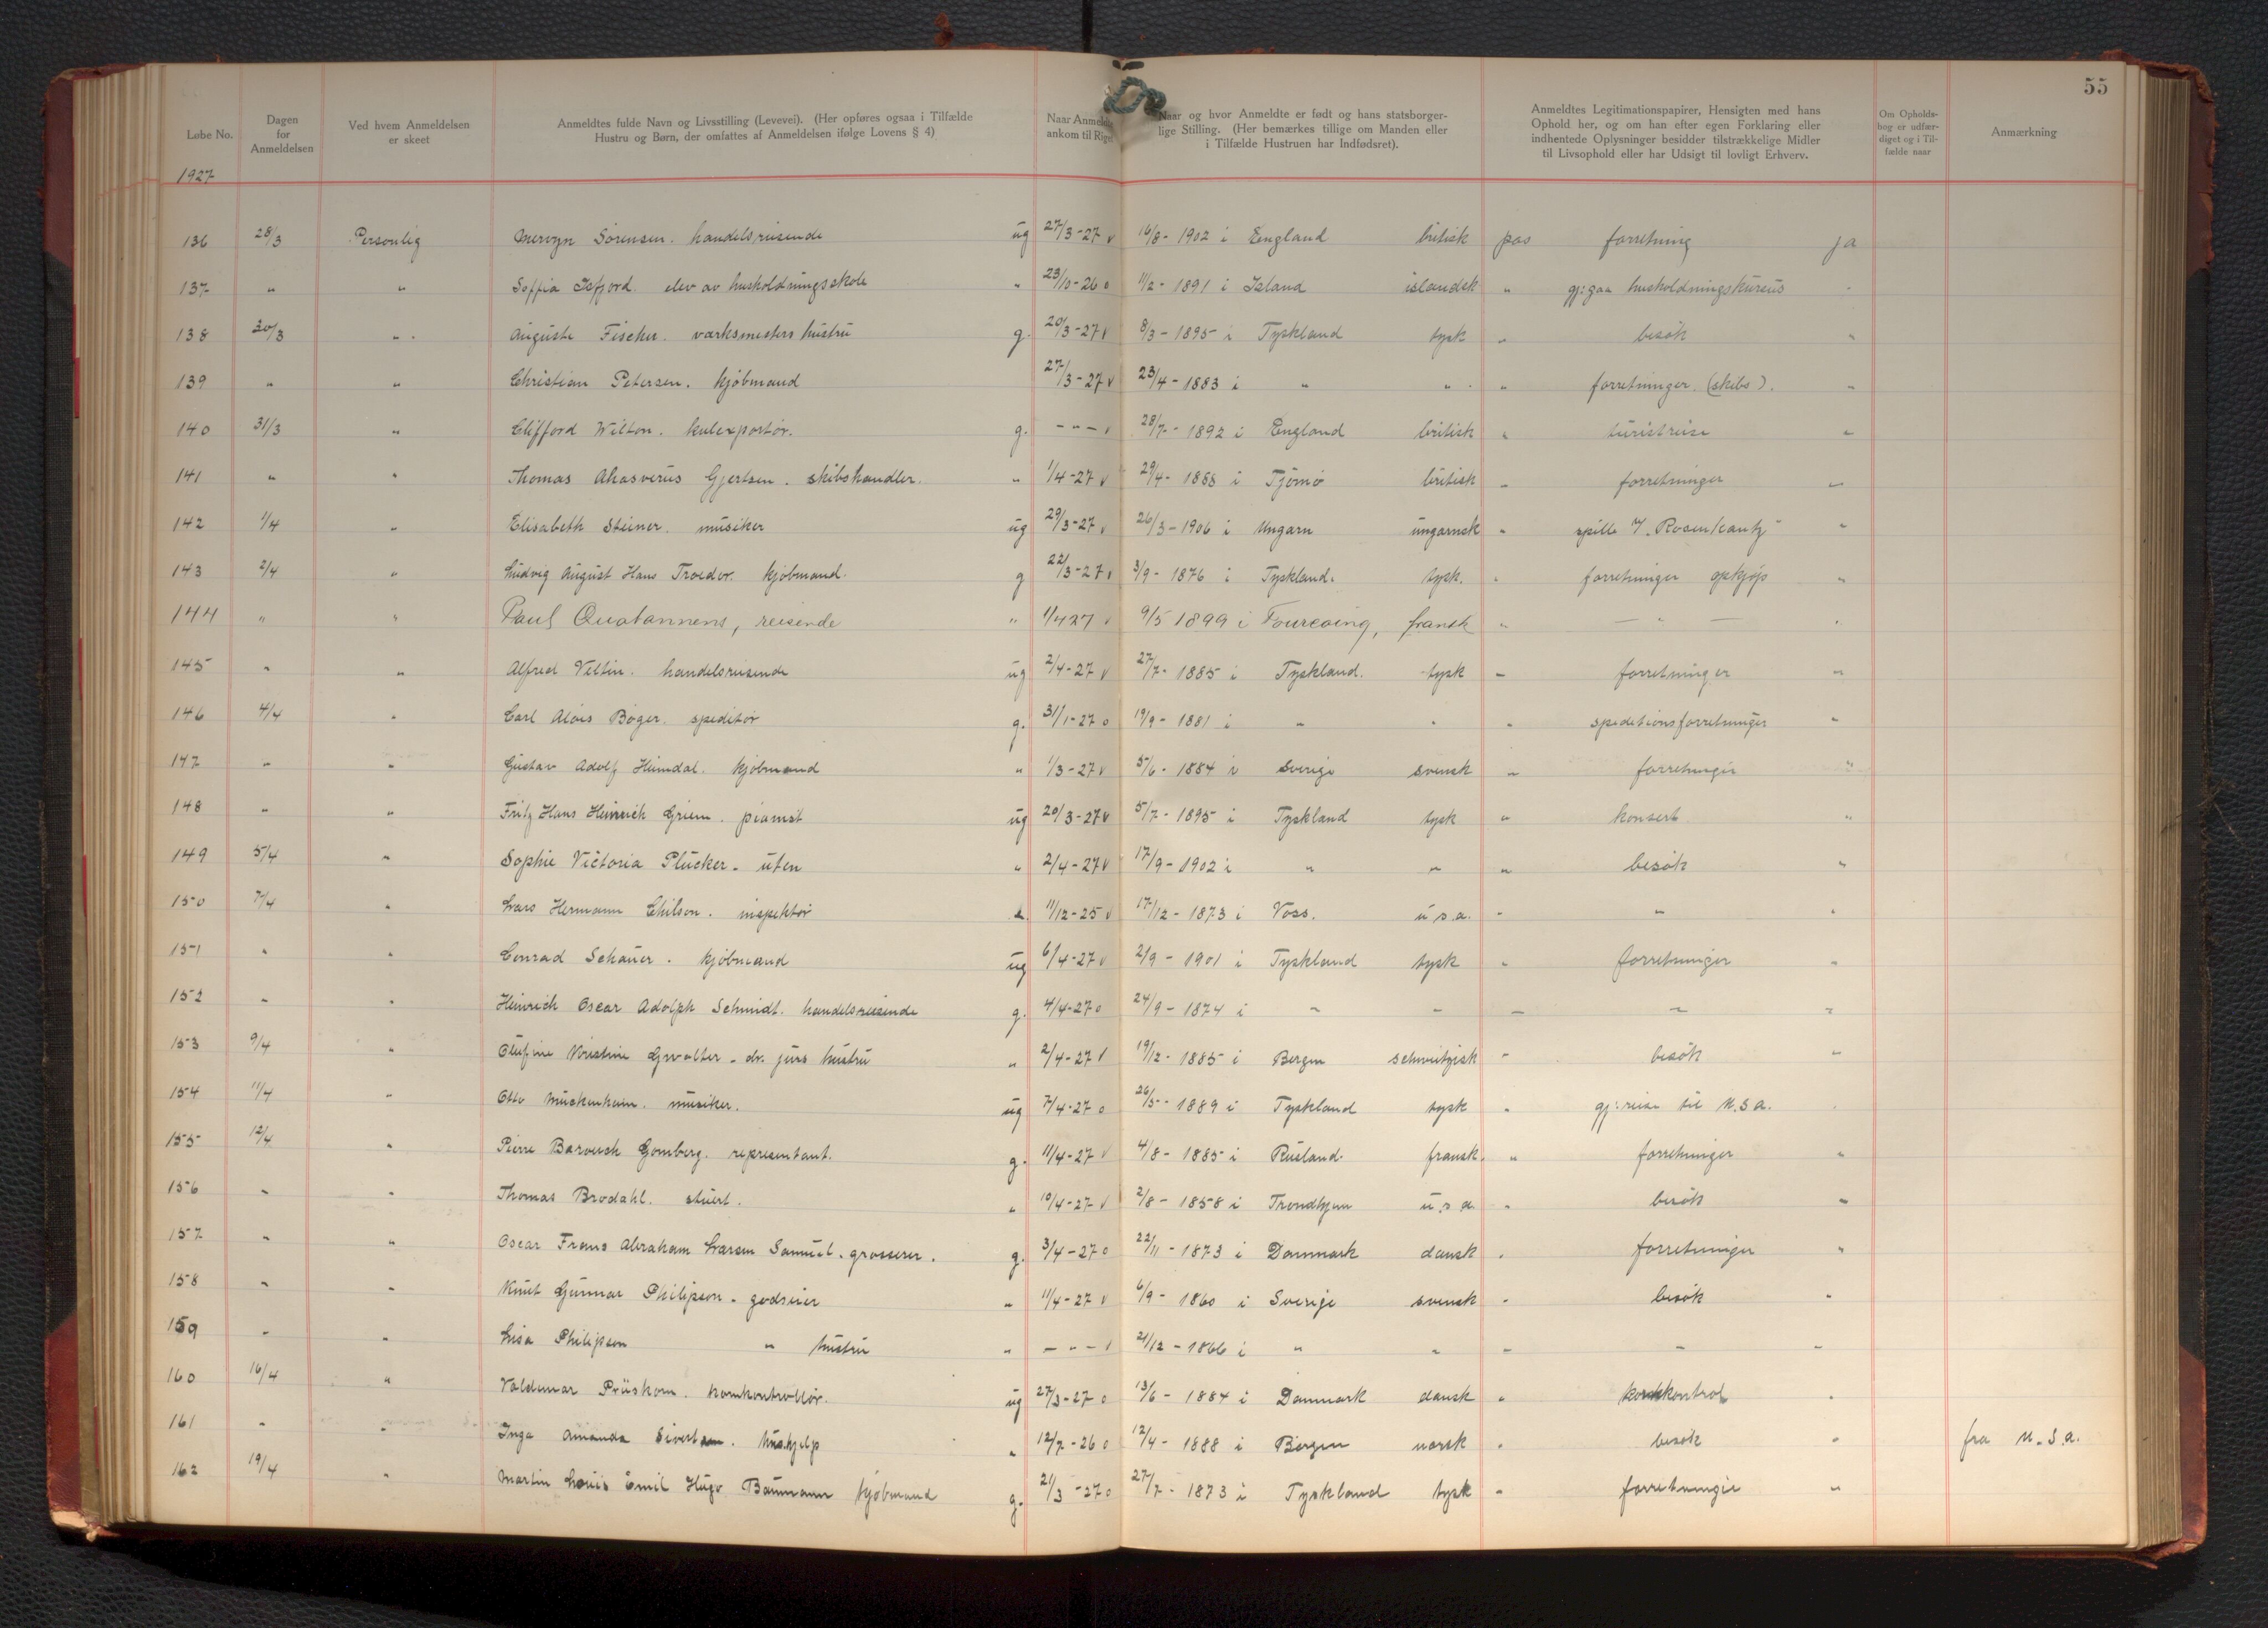 55
Løbe No. Dagen for Anmeldelsen Ved hvem Anmeldelsen er skeet Anmeldtes fulde Navn og Livsstilling (Levevei). (Her opføres ogsaa i Tilfælde Hustru og Børn, der omfattes af Anmeldelsen ifølge Lovens § 4) Naar Anmeldte ankom til Riget Naar og hvor Anmeldte er født og hans statsborgerlige Stilling. (Her bemærkes tillige om Manden eller i Tilfælde Hustruen har Indfødsret). Anmeldtes Legitimationspapirer, Hensigten med hans Ophold her, og om han efter egen Forklaring eller indhentede Oplysninger besidder tilstrækkelige Midler til Livsophold eller har Udsigt til lovligt Erhverv. Om Opholdsbog er udfærdiget og i Tilfælde naar Anmærkning
1927
136 28/3 Personlig Mervyn Sörensen. handelsreisende ug 27/3-27 v 16/8-1902 i England britisk pas forretning ja
137 " " Soffia Isfjord. elev av husholdningsskole " 23/10-26 o 11/2-1891 i Island islandsk " gj:gaa husholdningskursus "
138 30/3 " Auguste Fischer. værksmesters hustru g. 20/3-27 v 8/3-1895 i Tyskland tysk " besøk "
139 " " Christian Petersen. kjöbmand 27/3-27 v 23/4-1883 i " " " forretninger (skibs). "
140 31/3 " Clifford Wilton. kulexportör. g. - " - v 28/7-1892 i England britisk " turistreise "
141 " " Thomas Ahasverus Gjertsen. skibshandler. " 1/4-27 v 29/4-1888 i Tjömö britisk " forretninger "
142 1/4 " Elisabeth Steiner. musiker ug 29/3-27 v 26/3-1906 i Ungarn ungarnsk " spille "
143 2/4 " Ludvig August Hans Troeder. kjöbmand. g 22/3-27 v 3/9-1876 i Tyskland. tysk. " forretninger opkjøp "
144 " " Paul Quatannens, reisende " 1/4 27 v 9/5 1899 i Tourcoing, fransk " - " - "
145 " " Alfred Veltin. handelsreisende ug 2/4-27 v 27/7-1885 i Tyskland. tysk " forretninger "
146 4/4 " Carl Alois Böger. speditör g. 31/1-27 o 19/9-1881 i " " " speditionsforretninger "
147 " " Gustav Adolf Heimdal. kjöbmand " 1/3-27 v 5/6-1884 i Sverige svensk " forretninger "
148 " " Fritz Hans Heinrich Griem. pianist ug 20/3-27 v 5/7-1895 i Tyskland tysk " konsert "
149 5/4 " Sophie Victoria Plücker. uten " 2/4-27 v 17/9-1902 i " " " besök "
150 7/4 " Lars Hermann Chilson. inspektör 11/12-25 v 17/12-1873 i Voss. u.s.a. " " "
151 " " Conrad Schauer. kjöbmand ug 6/4-27 v 2/9-1901 i Tyskland tysk " forretninger "
152 " " Heinrich Oscar Adolph Schmidt. handelsreisende g. 4/4-27 o 24/9-1874 i " " " " "
153 9/4 " Olufine Kristine Gwalter. dr. jurs hustru " 2/4-27 v 19/12-1885 i Bergen schweitzisk " besök "
154 11/4 " Otto Muckenheim. musiker. ug 7/4-27 o 26/5-1889 i Tyskland tysk " gj:reise til U.S.A. "
155 12/4 " Pierre Barouch Gomberg. representant. g. 11/4-27 v 4/8-1885 i Rusland. fransk. " forretninger "
156 " " Thomas Brodahl. stuert. " 10/4-27 v 2/8-1858 i Trondhjem u.s.a. " besök "
157 " " Oscar Frans Abraham Larsen Samuel. grosserer. g. 3/4-27 o 22/11-1873 i Danmark dansk " forretninger "
158 " " Knut Gunnar Philipson. godseier " 11/4-27 v 6/9-1860 i Sverige svensk " besök "
159 " " Lisa Philipson " hustru " - " - v 21/12-1866 i " " " " "
160 16/4 " Valdemar Priiskorn. kornkontrollör. ug 27/3-27 o 13/6-1884 i Danmark dansk " kornkontrol "
161 " " Inga Amanda Sivertsen. hushjelp " 12/7-26 o 12/4-1888 i Bergen norsk " besök " fra U.S.A.
162 19/4 " Martin Louis Emil Hugo Baumann kjöbmand g. 21/3-27 o 27/7-1873 i Tyskland tysk " forretninger "